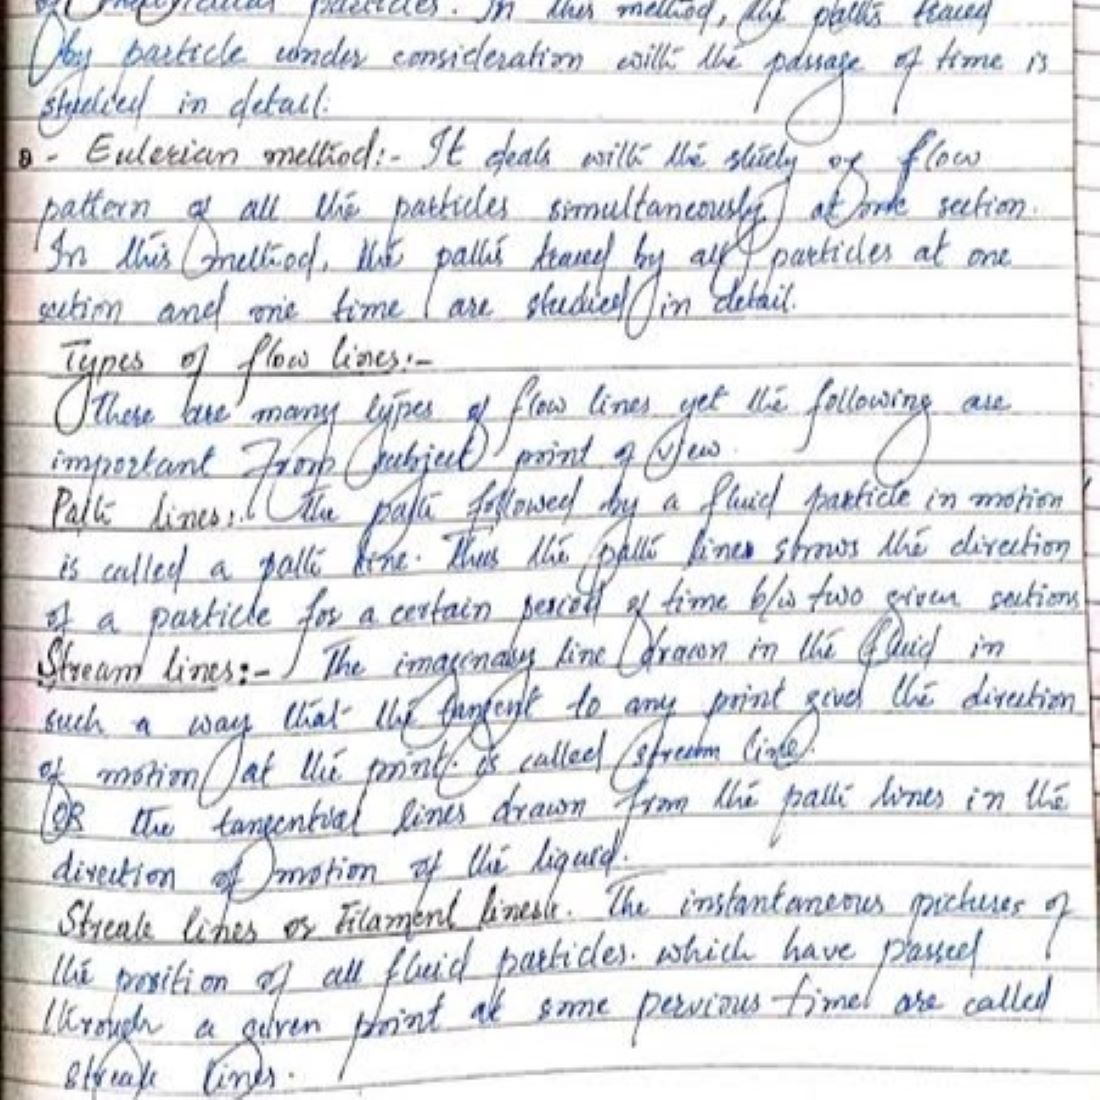 of individual particles. In this method, the paths traced
by particle under consideration with the passage of time is
studied in detail.
- Eulerian method:- It deals with the study of flow
pattern of all the particles simultaneously at one section.
In this method, the paths traced by all particles at one
section and one time are studied in detail.
Types of flow lines:-
There are many types of flow lines yet the following are
important from subject point of view.
Path lines:- The path followed by a fluid particle in motion
is called a path line. Thus the path lines shows the direction
of a particle for a certain period of time b/w two given sections
Stream lines:- The imaginary line drawn in the fluid in
such a way that the tangent to any point gives the direction
of motion at the point. is called stream line.
OR the tangential lines drawn from the path lines in the
direction of motion of the liquid.
Streak lines or Filament lines:- The instantaneous pictures of
the position of all fluid particles. which have passed
through a given point at some pervious time are called
streak lines.